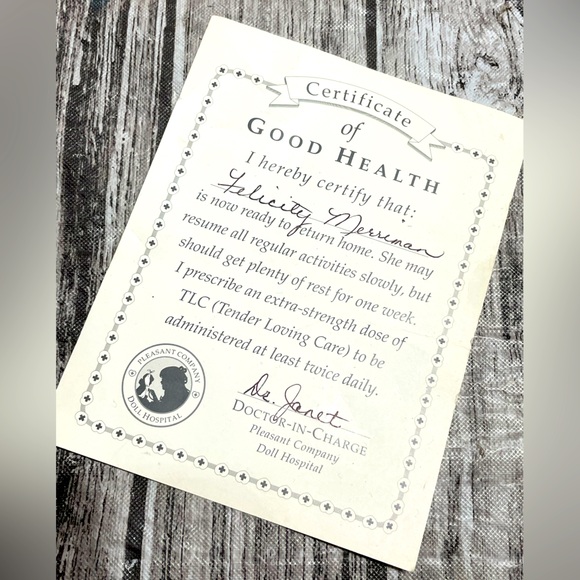 Certificate
of
GOOD HEALTH
I hereby certify that:
Felicity Merriman
is now ready to return home. She may
resume all regular activities slowly, but
should get plenty of rest for one week.
I prescribe an extra-strength dose of
TLC (Tender Loving Care) to be
administered at least twice daily.
PLEASANT COMPANY
DOLL HOSPITAL
Dr. Janet
DOCTOR-IN-CHARGE
Pleasant Company
Doll Hospital